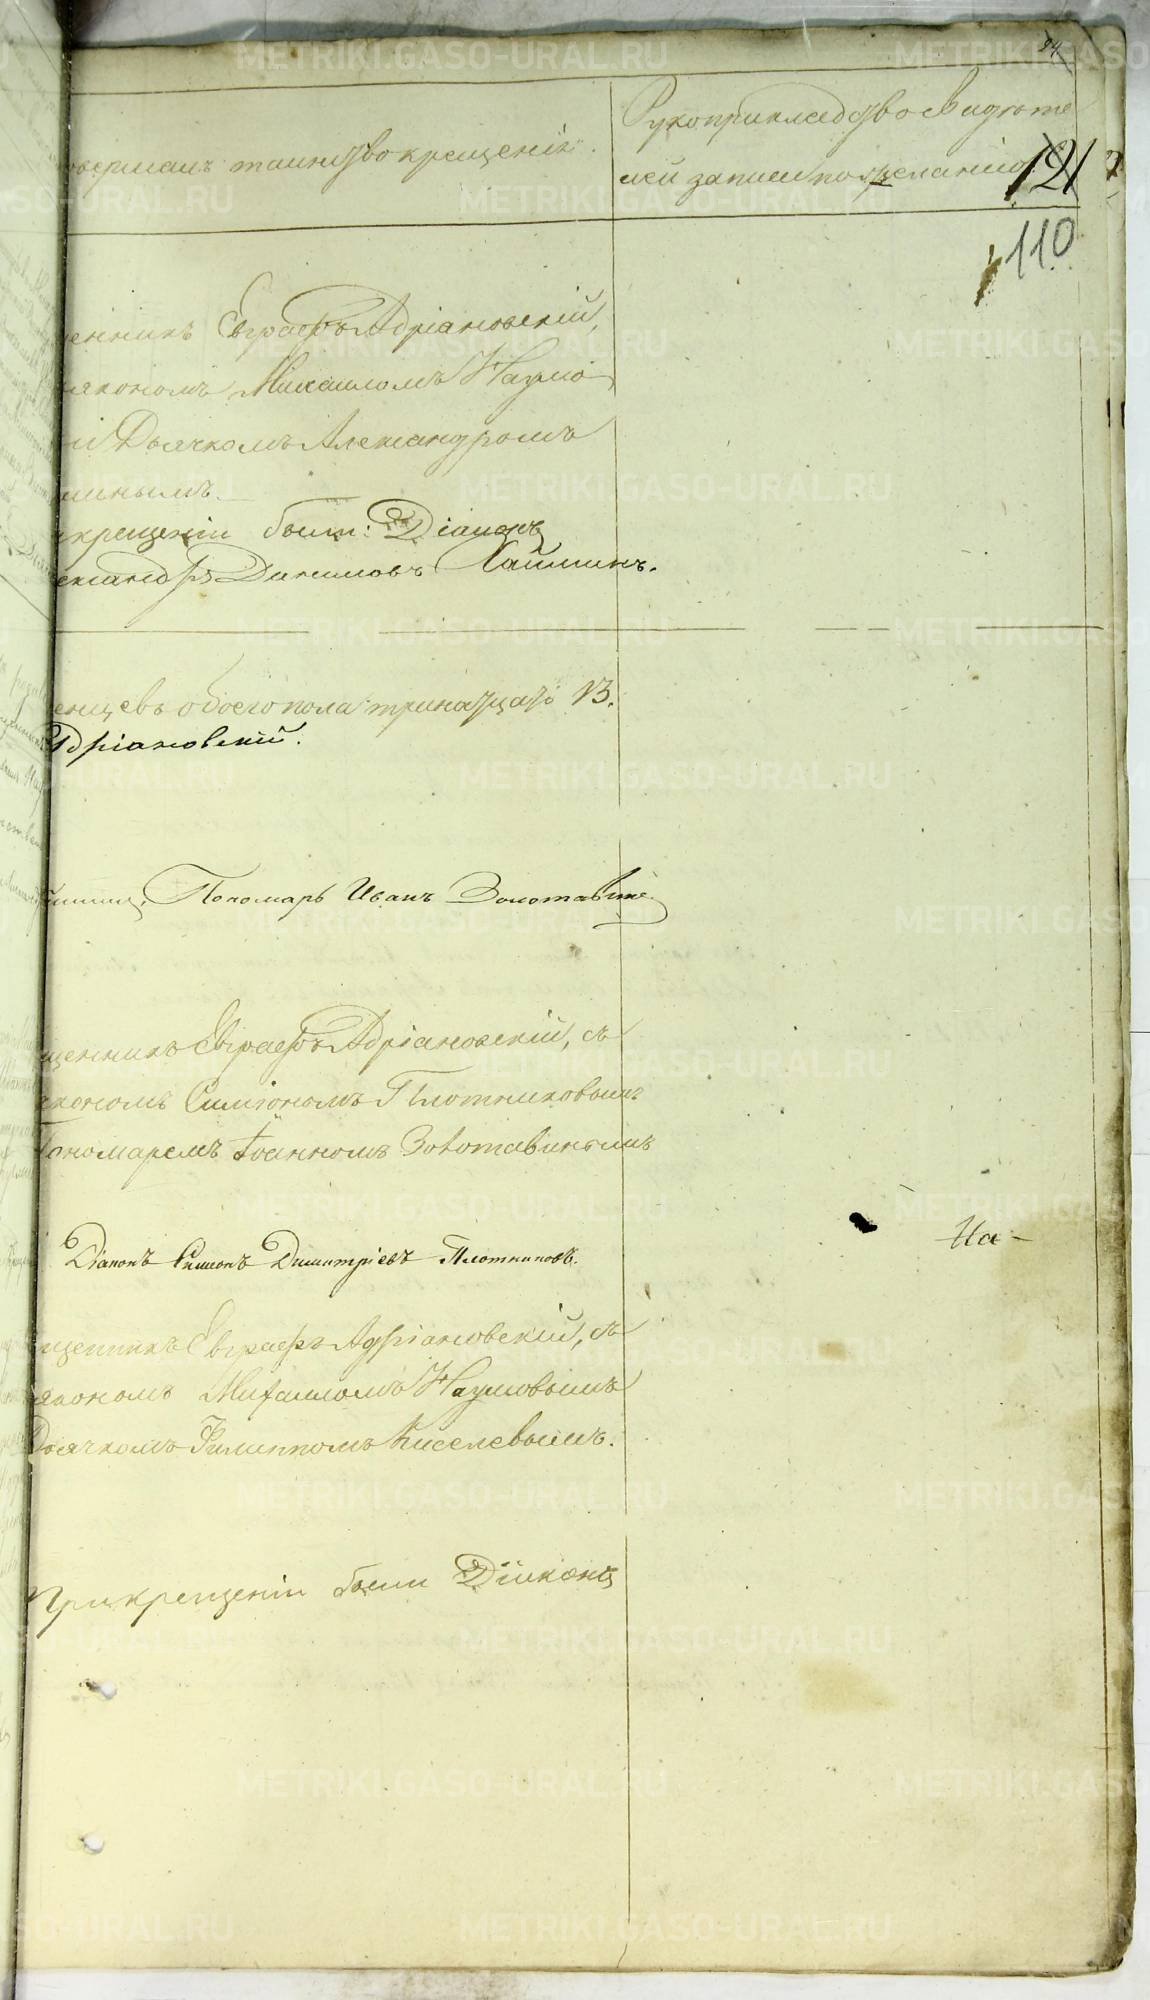 94
совершалъ таинство крещенія.
Рукоприкладство свидѣте
лей записи по желанію
121
110
щенникъ Евграфъ Адріановскій,
іакономъ Михаиломъ Наумо
и Дьячкомъ Александромъ
миномъ.
крещеніи были: Діаконъ
ександръ Даниловъ Хайминъ.
енцевъ обоего пола тринадцать 13.
Адріановскій.
Пономарь Иванъ Золотавинъ
щенникъ Евграфъ Адріановскій, съ
іакономъ Симеономъ Плотниковымъ
Пономаремъ Іоанномъ Золотавинымъ
На-
Діаконъ Симеонъ Димитріевъ Плотниковъ.
щенникъ Евграфъ Адріановскій, съ
іакономъ Михаиломъ Наумовымъ
Дьячкомъ Филиппомъ Киселевымъ.
При крещеніи были Діаконъ
METRIKI.GASO-URAL.RU